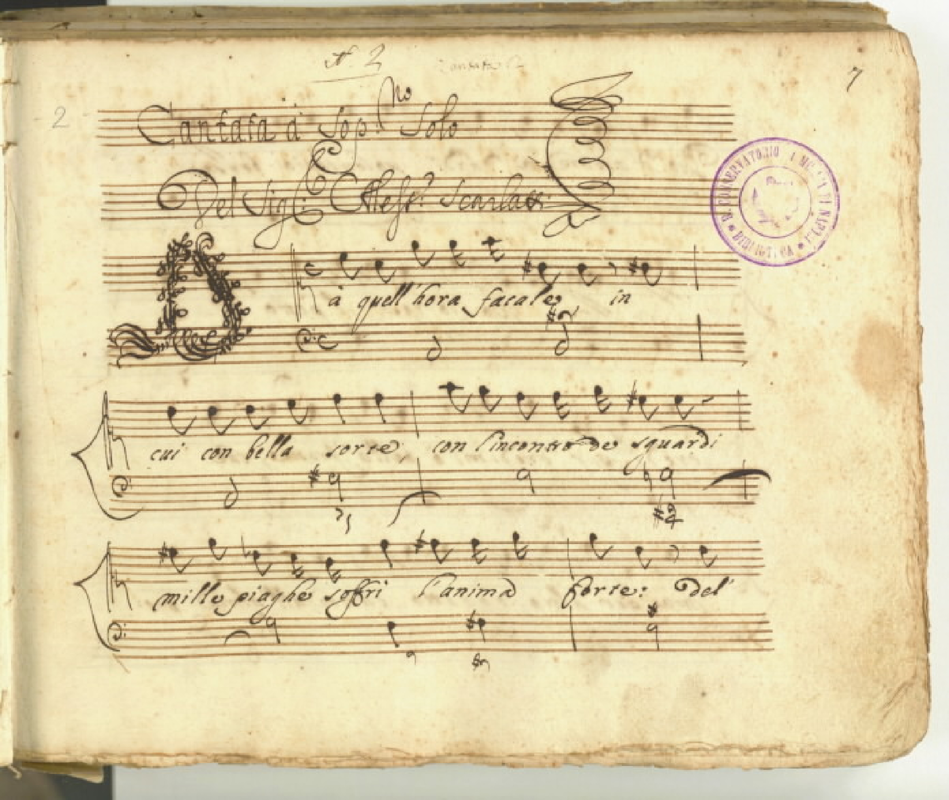 N. 2
Cantata 2
7
2
Cantata à Sop.no Solo
Del Sig.r Aless.o Scarlatti
Dà quell'hora fatale, in
cui con bella sorte con l'incontro de sguardi
mille piaghe soffrì l'anima forte: Del
R. CONSERVATORIO DI MUSICA DI NAPOLI
BIBLIOTECA